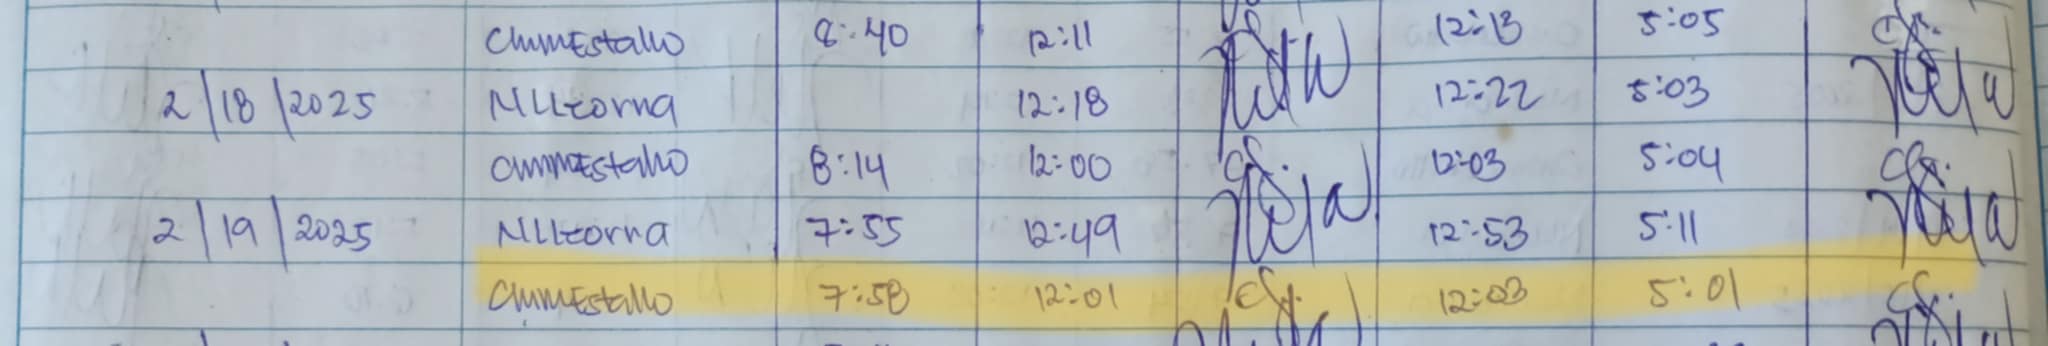 CMMEstallo 8:40 12:11 12:13 5:05
2/18/2025 NLLtorna 12:18 12:22 5:03
CMMEstallo 8:14 12:00 12:03 5:04
2/19/2025 NLLtorna 7:55 12:49 12:53 5:11
CMMEstallo 7:58 12:01 12:03 5:01